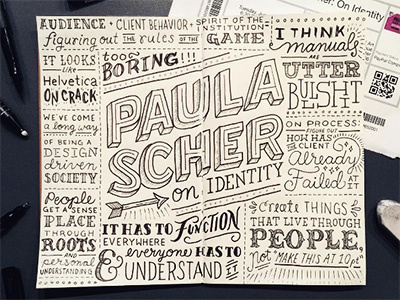 AUDIENCE + CLIENT BEHAVIOR + SPIRIT OF THE INSTITUTION
figuring out the rules of the GAME
IT LOOKS
LIKE
Helvetica
ON CRACK
WE'VE COME
a long way
OF BEING A
DESIGN
driven
SOCIETY
People
GET A SENSE
OF
PLACE
THROUGH
ROOTS
AND
personal
UNDERSTANDING
too
BORING!!!
PAULA
SCHER
on IDENTITY
IT HAS TO FUNCTION
EVERYWHERE
& everyone HAS TO
UNDERSTAND IT
I THINK
manuals
ARE
UTTER
BULLSH!T
ON PROCESS:
FIGURE OUT
HOW HAS
THE CLIENT
Already
Failed AT IT
Create THINGS
THAT LIVE THROUGH
PEOPLE,
not "MAKE THIS AT 10pt"
er: On Identity